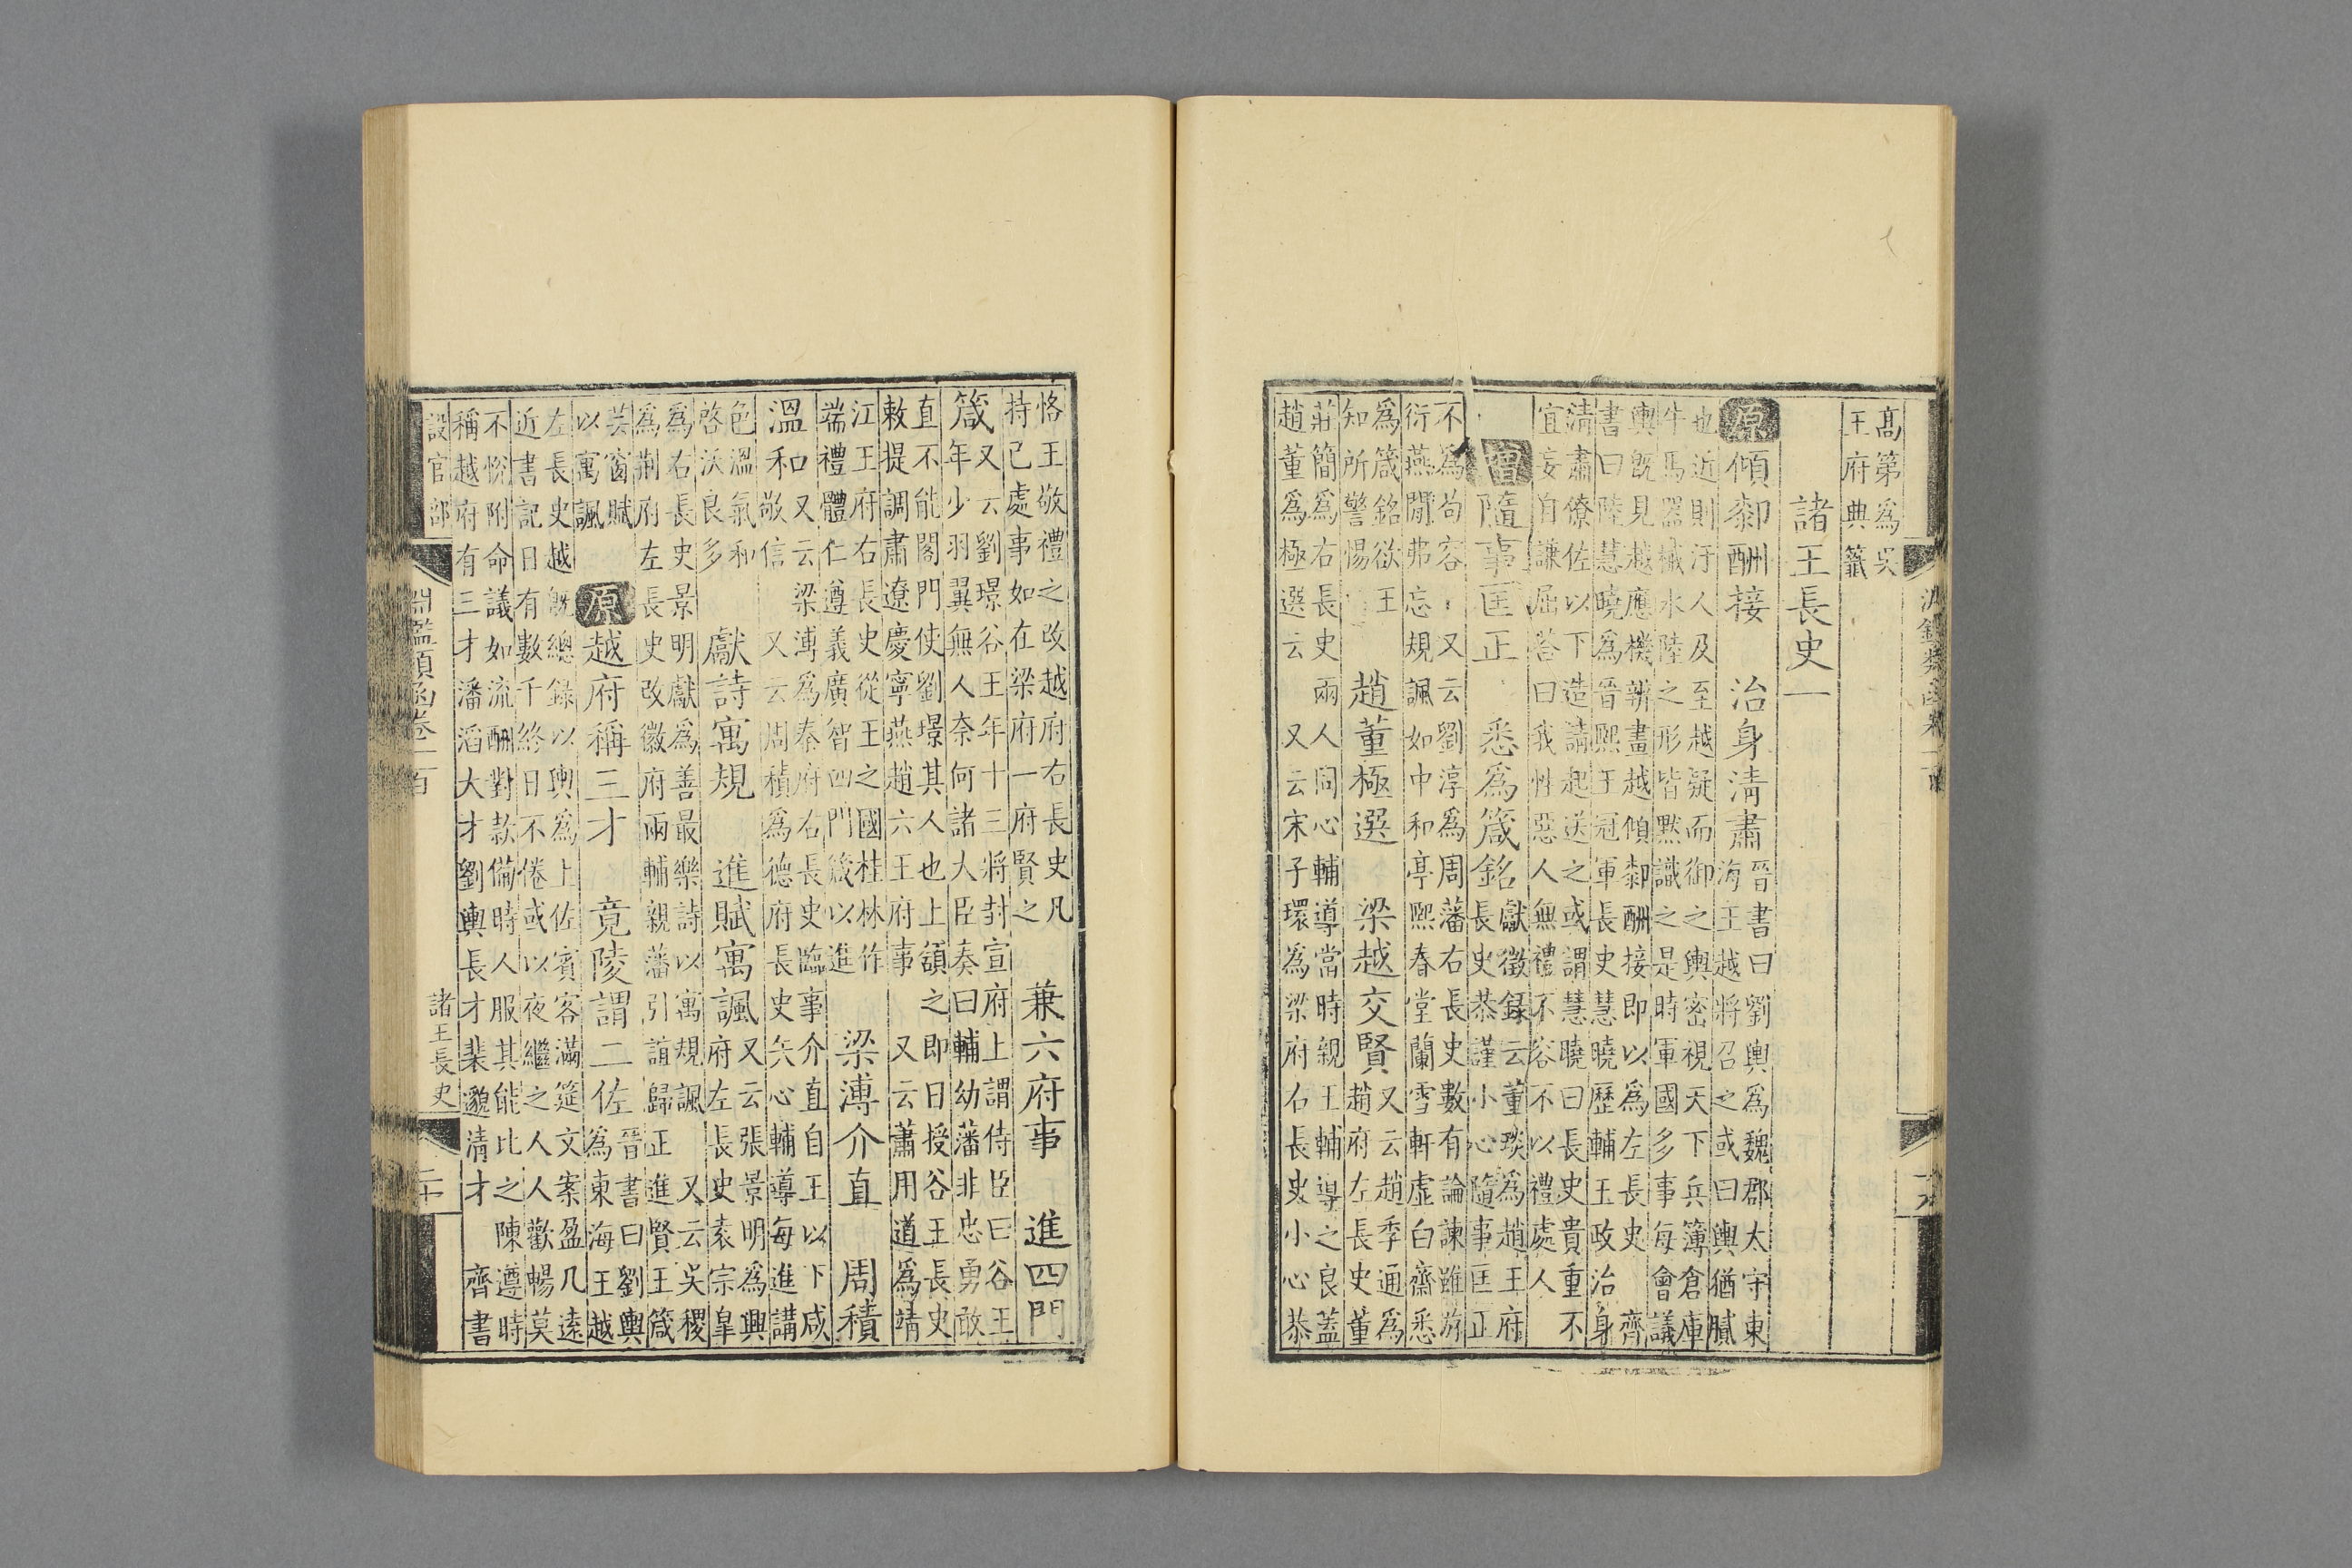 淵鑑類函卷一百
高第為吳
王府典籤
諸王長史一
原 傾厀酬接 治身清肅
晉書曰劉輿為魏郡太守東
海王越將召之或曰輿猶膩
也近則汙人及至越疑而御之輿密視天下兵簿倉庫
牛馬器械水陸之形皆默識之是時軍國多事每會議
輿既見越應機辨畫越傾厀酬接即以為左長史 齊
書曰陸慧曉為晉熙王冠軍長史慧曉歷輔王政治身
清肅僚佐以下造請起送之或謂慧曉曰長史貴重不
宜妄自謙屈答曰我性惡人無禮不容不以禮處人
增 隨事匡正 悉為箴銘
獻徵録云董琰為趙王府
長史恭謹小心隨事匡正
不為苟容 又云劉淳為周藩右長史數有論諫雖游
衍燕閒弗忘規諷如中和亭熙春堂蘭雪軒虛白齋悉
為箴銘欲王
知所警惕
趙董極選 梁越交賢
又云趙季通為
趙府左長史董
莊簡為右長史兩人同心輔導當時親王輔導之良蓋
趙董為極選云 又云宋子環為梁府右長史小心恭
恪王敬禮之改越府右長史凡
持已處事如在梁府一府賢之
兼六府事 進四門
箴
又云劉璟谷王年十三將封宣府上謂侍臣曰谷王
年少羽翼無人奈何諸大臣奏曰輔幼藩非忠勇敢
直不能閣門使劉璟其人也上頷之即日授谷王長史
敕提調肅遼慶寧燕趙六王府事 又云蕭用道為靖
江王府右長史從王之國桂林作
端禮體仁遵義廣智四門箴以進
梁溥介直 周積
溫和
又云梁溥為秦府右長史臨事介直自王以下咸
敬信 又云周積為德府長史矢心輔導每進講
色溫氣和
啓沃良多
獻詩寓規 進賦寓諷
又云張景明為興
府左長史袁宗臯
為右長史景明獻為善最樂詩以寓規諷 又云吳稷
為荆府左長史改徽府兩輔親藩引誼歸正進賢王箴
芸窗賦
以寓諷
原 越府稱三才 竟陵謂二佐
晉書曰劉輿
為東海王越
左長史越既總録以輿為上佐賓客滿筵文案盈几遠
近書記日有數千終日不倦或以夜繼之人人歡暢莫
不悅附命議如流酬對款備時人服其能比之陳遵時
稱越府有三才潘滔大才劉輿長才裴邈清才 齊書
設官部 淵鑑類函卷一百 諸王長史 二十